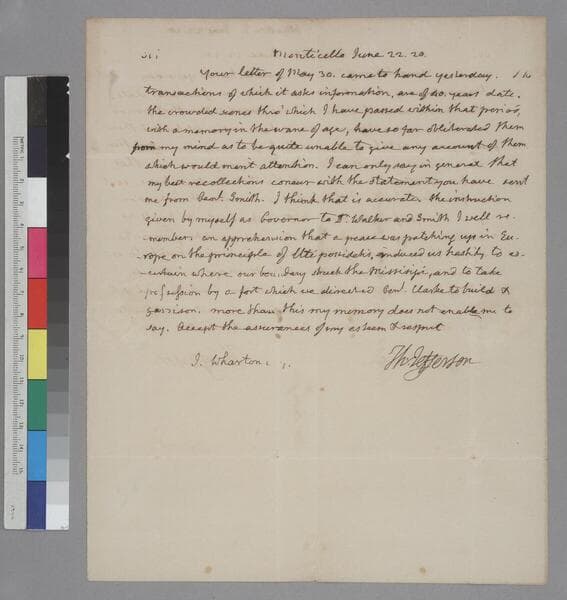 Monticello June 22. 20.
Your letter of May 30. came to hand yesterday. the
transactions of which it asks information, are of 40. years date.
the crowded scenes thro' which I have passed within that period,
with a memory in the wane of age, have so far obliterated them
from my mind as to be quite unable to give any account of them
which would merit attention. I can only say in general that
my best recollections concur with the statement you have sent
me from Genl. Smith. I think that is accurate. the instruction
given by myself as Governor to Dr. Walker and Smith I well re-
member. an apprehension that a peace was patching up in Eu-
rope on the principle of Uti possidetis, induced us hastily to as-
certain where our boundary struck the Missisipi, and to take
possession by a fort which we directed Genl. Clarke to build &
garrison. more than this my memory does not enable me to
say. Accept the assurances of my esteem & respect
Th: Jefferson
J. Wharton.